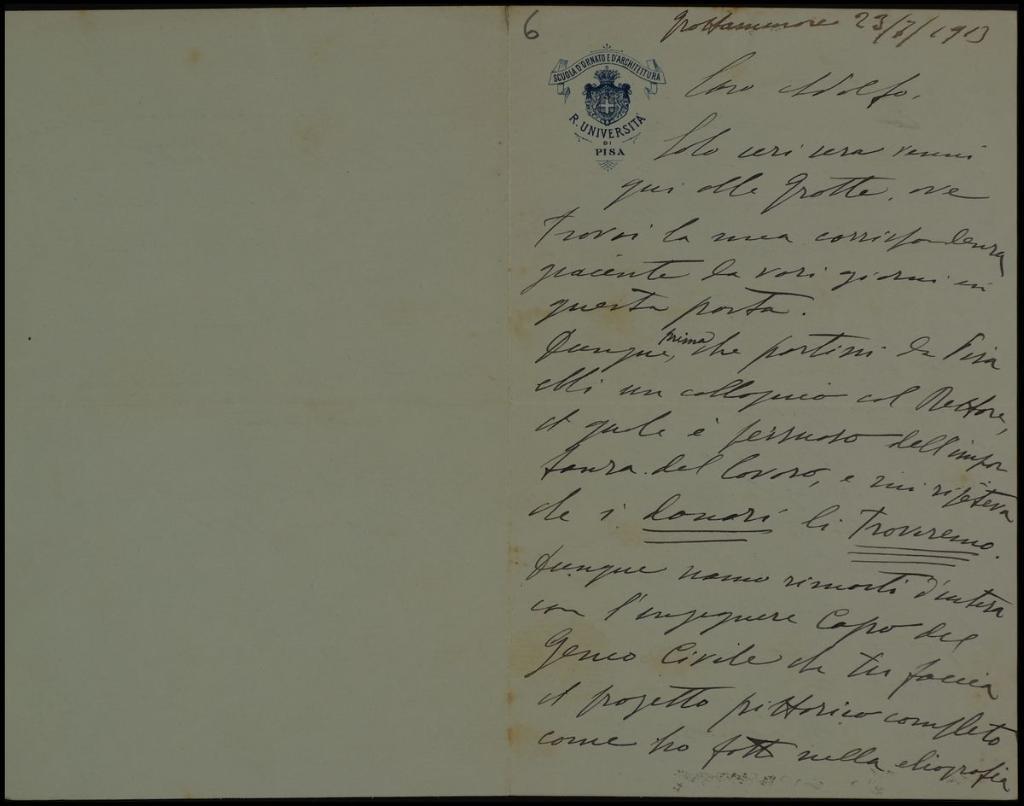 6
Grottammare 23/7/1913
SCUOLA D'ORNATO E D'ARCHITETTURA
R. UNIVERSITÀ
DI
PISA
Caro Adolfo,
Solo ieri sera venni
qui alle Grotte, ove
trovai la mia corrispondenza
giacente da vari giorni in
questa posta.
Dunque, prima che partissi da Pisa
ebbi un colloquio col Rettore,
il quale è persuaso dell'impor
tanza del lavoro, e mi ripeteva
che i danari li troveremo.
Dunque siamo rimasti d'intesa
con l'ingegnere Capo del
Genio Civile che tu faccia
il progetto pittorico completo
come ho fatto nella eliografia